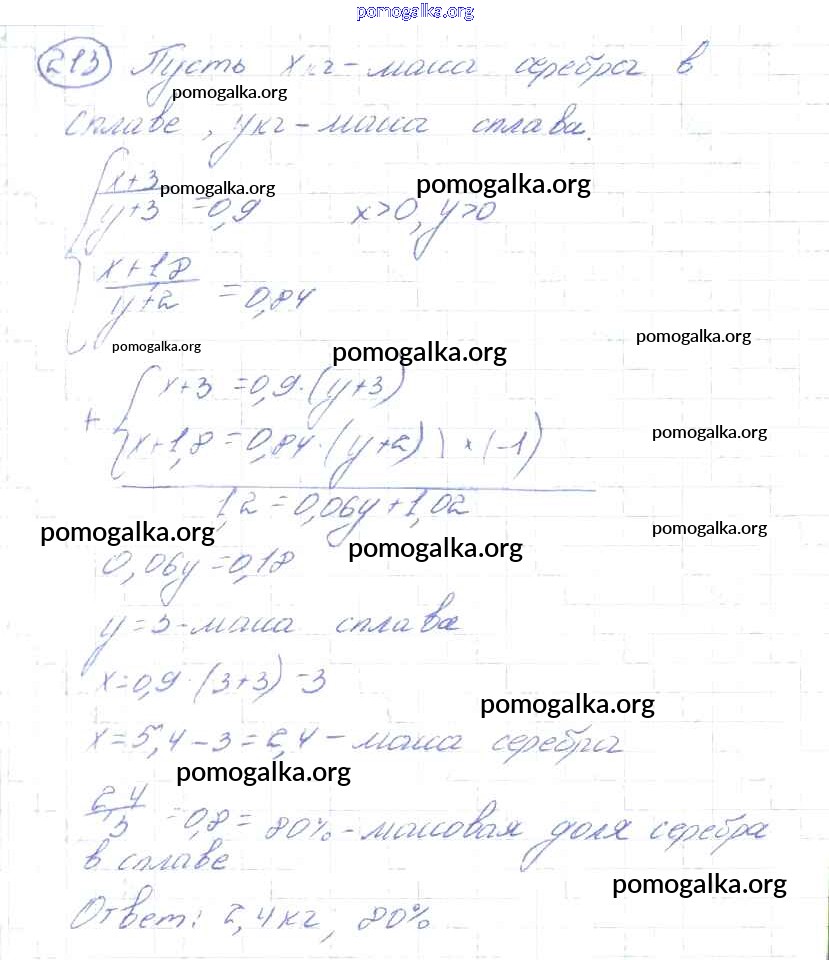 pomogalka.org
213 Пусть x кг - маса серебра в
pomogalka.org
сплаве, y кг - маса сплава.
x+3 pomogalka.org pomogalka.org
y+3 =0,9 x>0, y>0
x+1,8
y+2 =0,84
pomogalka.org pomogalka.org pomogalka.org
+ { x+3 =0,9·(y+3)
x+1,8=0,84·(y+2) | × (-1) pomogalka.org
1,2=0,06y+1,02
pomogalka.org pomogalka.org pomogalka.org
0,06y=0,18
y=3-маса сплава
x=0,9·(3+3)-3
pomogalka.org
x=5,4-3=2,4- маса серебра
pomogalka.org
2,4
3 =0,8=80%-массовая доля серебра
в сплаве
pomogalka.org
Ответ: 2,4кг, 80%